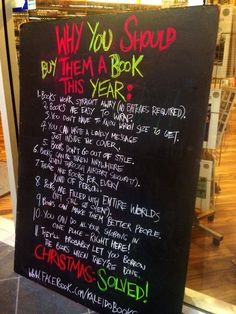 WHY YOU SHOULD
BUY THEM A BOOK
THIS YEAR:
1. BOOKS WORK STRAIGHT AWAY (NO BATTERIES REQUIRED).
2. BOOKS ARE EASY TO WRAP.
3. YOU DON'T HAVE TO KNOW WHICH SIZE TO GET.
4. YOU CAN WRITE A LOVELY MESSAGE
JUST INSIDE THE COVER.
5. BOOKS DON'T GO OUT OF STYLE.
6. BOOKS CAN BE TAKEN ANYWHERE
(EVEN THROUGH AIRPORT SECURITY).
7. THERE ARE BOOKS FOR EVERY
KIND OF PERSON.
8. BOOKS ARE FILLED WITH ENTIRE WORLDS
9. BOOKS CAN MAKE THEM BETTER PEOPLE.
10. YOU CAN DO ALL YOUR SHOPPING IN
ONE PLACE - RIGHT HERE!
11. THEY'LL PROBABLY LET YOU BORROW
THE BOOKS WHEN THEY'RE DONE.
CHRISTMAS: SOLVED!
WWW.FACEBOOK.COM/KALEIDOBOOKS